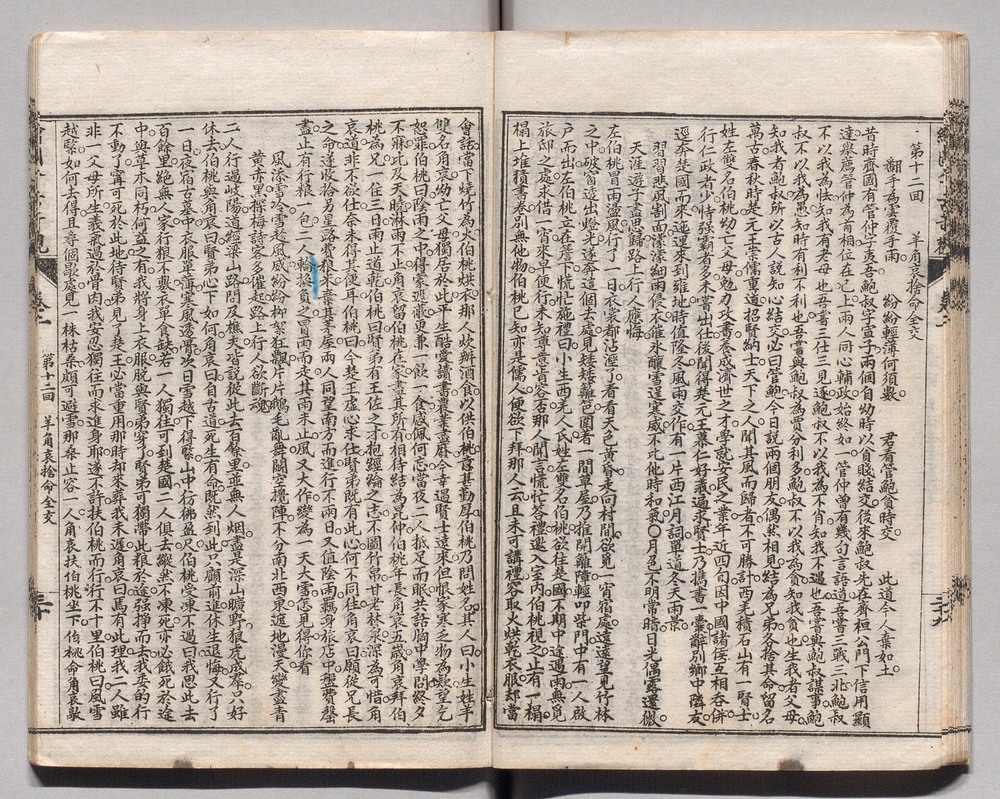 第十二回　羊角哀捨命全交
翻手為雲覆手雨　紛紛輕薄何須數　君看管鮑貧時交　此道今人棄如土
昔時齊國有管仲字夷吾鮑叔字宣子兩個自幼時以貧賤結交後來鮑叔先在齊桓公門下信用顯
達舉薦管仲為首相位在己上兩人同心輔政始終如一管仲曾有幾句言語道吾嘗三戰三北鮑叔
不以我為怯知我有老母也吾嘗三仕三見逐鮑叔不以我為不肖知我不遇也吾嘗與鮑叔談事鮑
叔不以我為愚知時有利不利也吾嘗與鮑叔為賈分利多鮑叔不以我為貪知我貧也生我者父母
知我者鮑叔所以古今說知心結交必曰管鮑今日說兩個朋友偶然相見結為兄弟各捨其命留名
萬古春秋時楚元王崇儒重道招賢納士天下之人聞其風而歸者不可勝計西羌積石山有一賢士
姓左雙名伯桃幼亡父母勉力攻書養成濟世之才學就安民之業年近四旬因中國諸侯互相吞併
行仁政者少恃強霸者多未嘗出仕後聞得楚元王慕仁好義遍求賢士乃攜書一囊辭別鄉中鄰友
逕奔楚國而來迤邐來到雍地時值隆冬風雨交作有一片西江月詞單道冬天雨景
習習悲風割面濛濛細雨侵衣催冰釀雪逞寒威不比他時和氣　山色不明常暗日光偶露還微
天涯遊子盡思歸路上行人應悔
左伯桃冒雨盪風行了一日衣裳都沾溼了看看天色黃昏走向村間欲覓一宵宿處遠遠望見竹林
之中破窗透出燈光逕奔這個去處見矮矮籬笆圍著一間草屋乃推開籬障輕叩柴門中有一人啟
戶而出左伯桃立在簷下慌忙施禮曰小生西羌人氏姓左雙名伯桃欲往楚國不期中途遇雨無覓
旅邸之處求借一宵來早便行未知尊意肯容否那人聞言慌忙答禮邀入室內伯桃視之止有一榻
榻上堆積書卷別無他物伯桃已知亦是儒人便欲下拜那人云且未可講禮容取火烘乾衣服卻當
會話當下燒竹為火伯桃烘衣那人炊辦酒食以供伯桃意甚勤厚伯桃乃問姓名其人曰小生姓羊
雙名角哀幼亡父母獨居於此平生酷愛讀書農業盡廢今幸遇賢士遠來但恨家寒乏物為款望乞
恕罪伯桃曰陰雨之中得蒙遮蔽更兼一飲一食感佩何忘當夜二人抵足而眠共話胸中學問終夕
不寐比及天曉淋雨不止角哀留伯桃在家盡其所有相待結為昆仲伯桃年長角哀五歲角哀拜伯
桃為兄一住三日雨止道乾伯桃曰賢弟有王佐之才抱經綸之志不圖竹帛甘老林泉深為可惜角
哀道非不欲仕奈未得其便耳伯桃曰今楚王虛心求仕賢弟既有此心何不同往角哀曰願從兄長
之命遂收拾另星路費糧米棄其茅屋兩人同望南方而進行不兩日又值陰雨羈身旅店中盤費罄
盡止有行糧一包二人輪換負之冒雨而走其雨未止風又大作變為一天大雪怎見得你看
風添雪冷雪趁風威紛紛柳絮狂飄片片鵝毛亂舞團空攪陣不分南北西東遮地漫天變盡青
黃赤黑探梅詩客多催起路上行人欲斷魂
二人行過岐陽道經梁山路問及樵夫皆說從此去百餘里並無人烟盡是深山曠野狼虎成羣只好
休去伯桃與角哀曰賢弟心下如何角哀曰自古道死生有命既然到此只顧前進休生退悔又行了
一日夜宿古墓中衣服單薄寒風透骨次日雪越下得緊山中彷彿盈尺伯桃受凍不過曰我思此去
百餘里絕無人家行糧不敷衣單食缺若一人獨往可到楚國二人俱去縱然不凍死亦必餓死於途
中與草木同朽何益之有我將身上衣服脫與賢弟穿了賢弟可獨帶此糧於途強掙而去我委的行
不動了寧可死於此地待賢弟見了楚王必當重用那時却來葬我未遲角哀曰焉有此理我二人雖
非一父母所生義氣過於骨肉我安忍獨往而求進身耶遂不許扶伯桃而行行不十里伯桃曰風雪
越緊如何去得且尋個歇處見一株枯桑頗可避雪那桑止容一人角哀扶伯桃坐下伯桃命角哀敲
第十二回　羊角哀捨命全交
卷一
三十